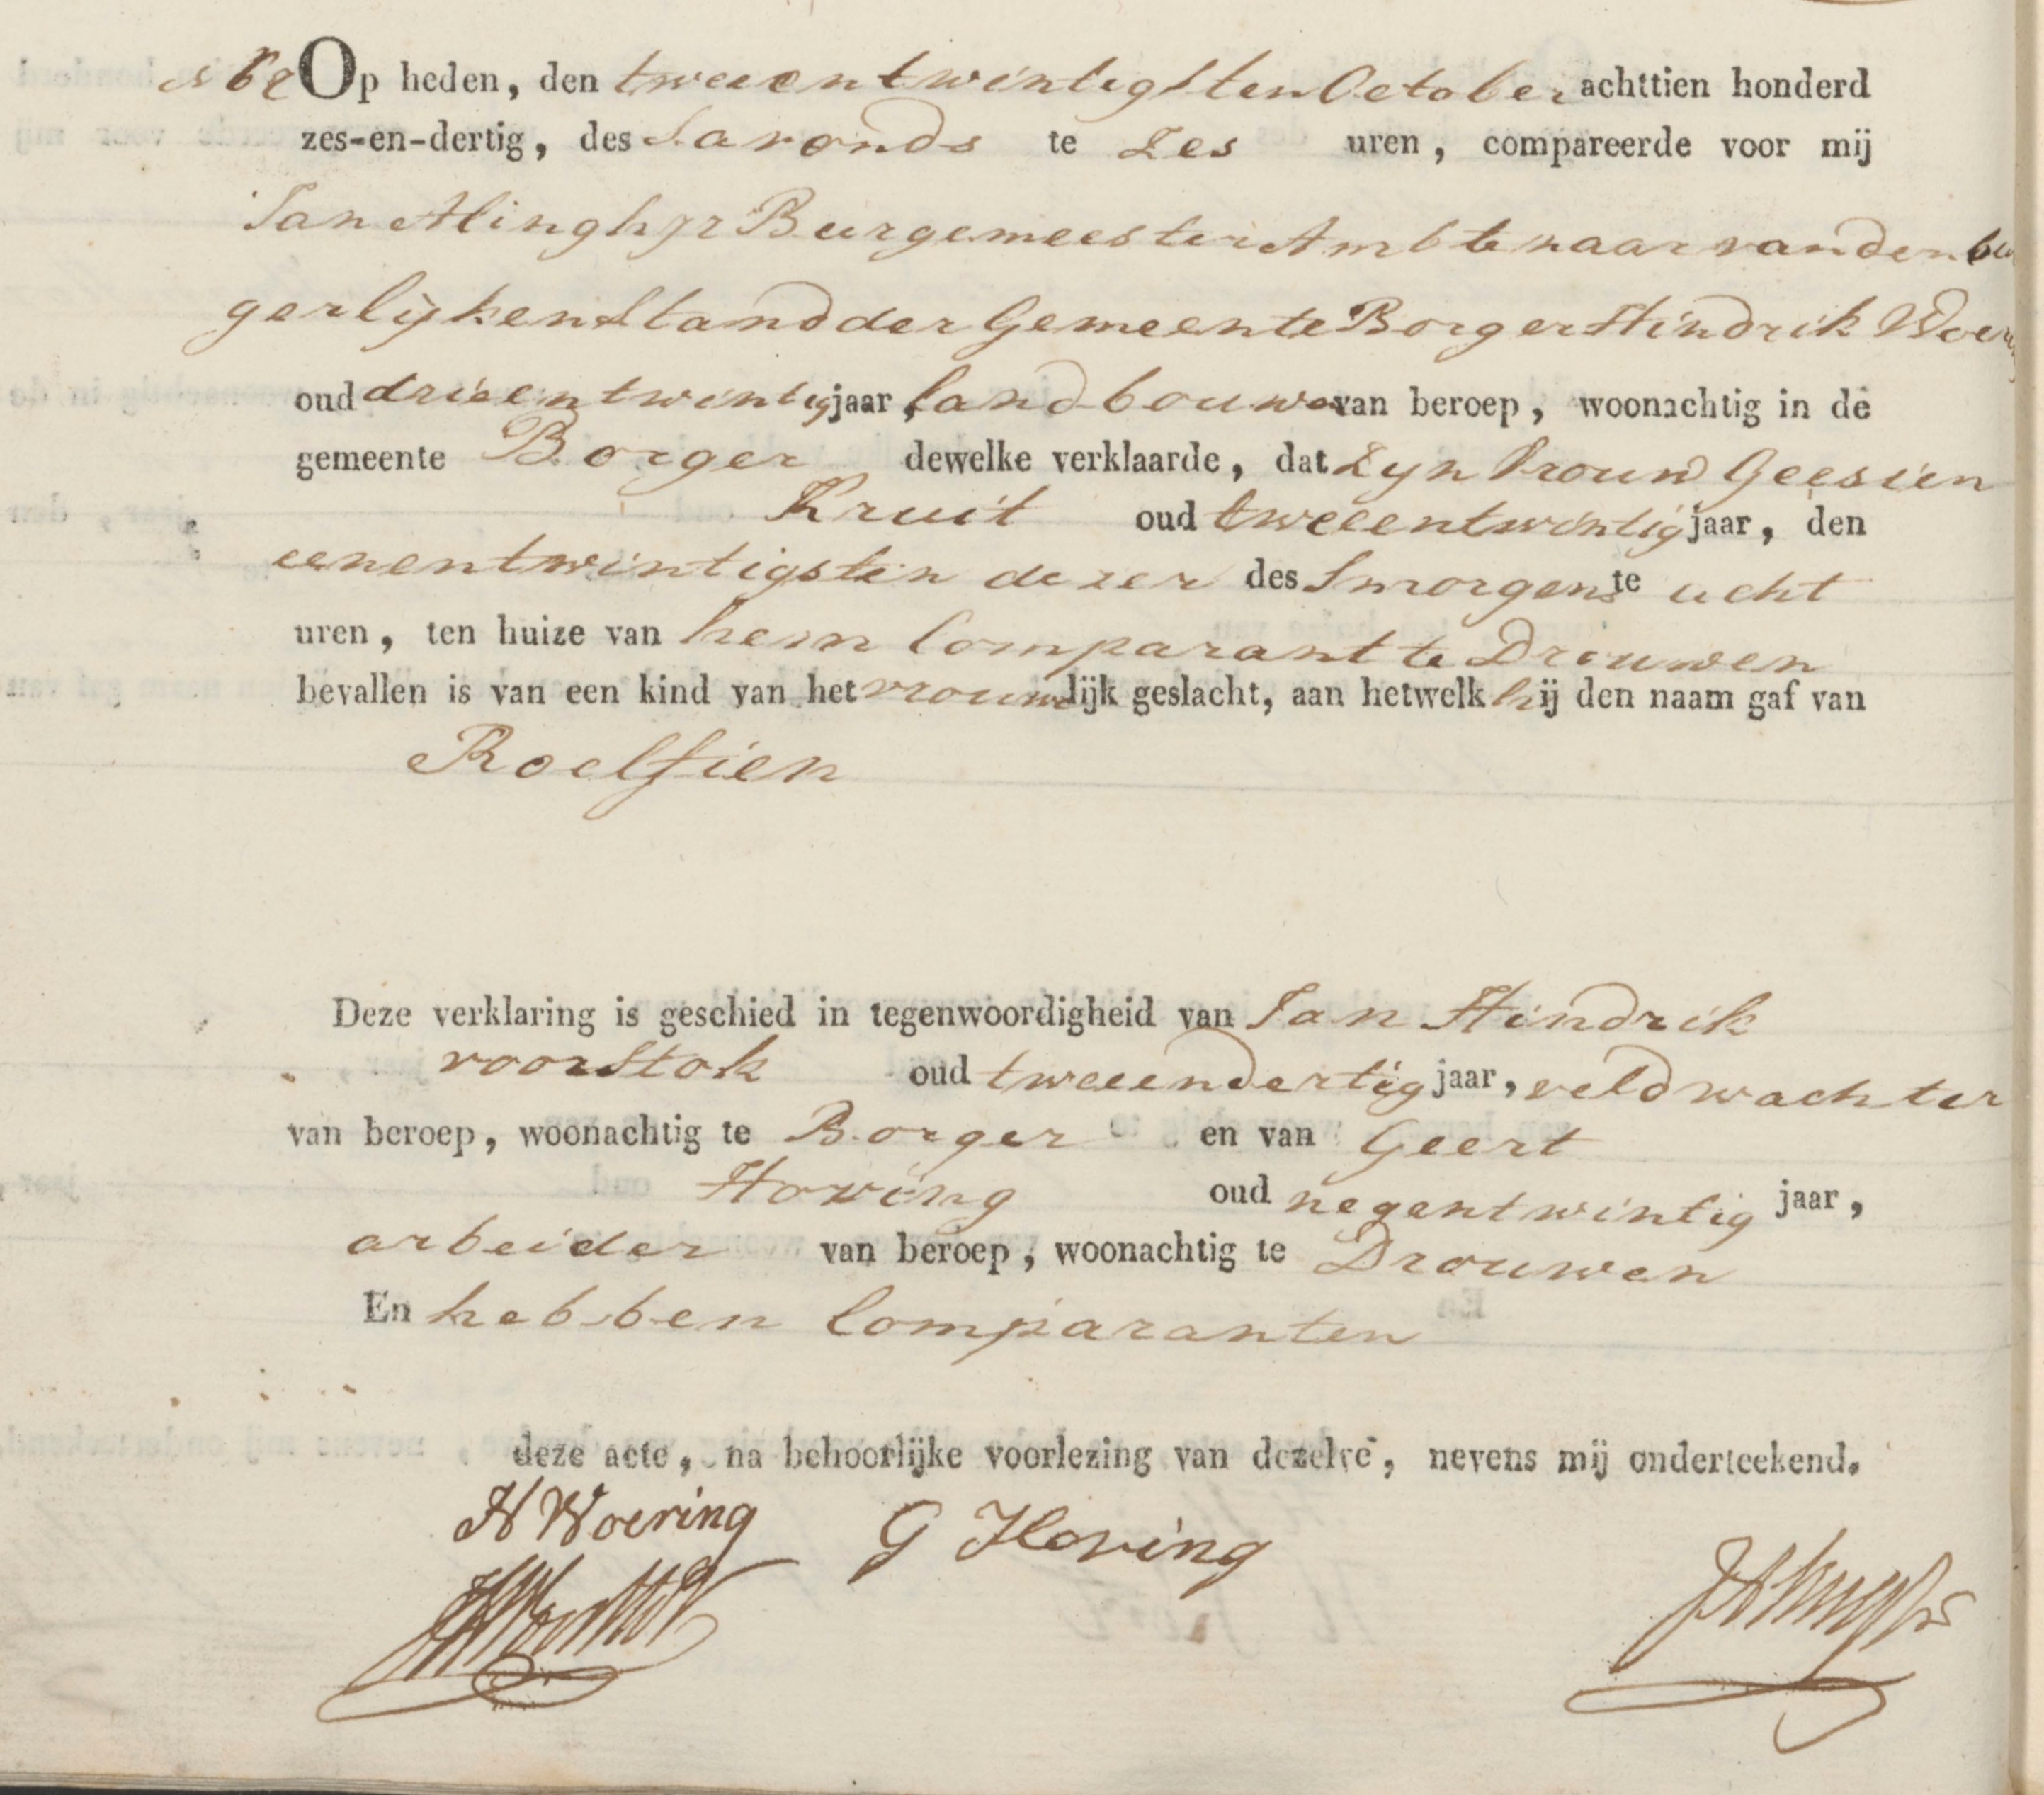 Op heden, den tweeentwintigsten October achttien honderd
zes-en-dertig, des Savonds te Zes uren, compareerde voor mij
Jan Alingh jr Burgemeester Ambtenaar van den bur
gerlijken Stand der Gemeente Borger Hindrik Woering
oud drieentwintig jaar, landbouwer van beroep, woonachtig in de
gemeente Borger dewelke verklaarde, dat Zyn Vrouw Geesien
Kruit oud tweeentwintig jaar, den
eenentwintigsten dezer des Smorgens te acht
uren, ten huize van hem Comparant te Drouwen
bevallen is van een kind van het vrouwlijk geslacht, aan hetwelk hij den naam gaf van
Roelfien
Deze verklaring is geschied in tegenwoordigheid van Jan Hindrik
voorstok oud tweeendertig jaar, veldwachter
van beroep, woonachtig te Borger en van Geert
Hoving oud negentwintig jaar,
arbeider van beroep, woonachtig te Drouwen
En hebben Comparanten
deze acte, na behoorlijke voorlezing van dezelve, nevens mij onderteekend.
H Woering G Hoving